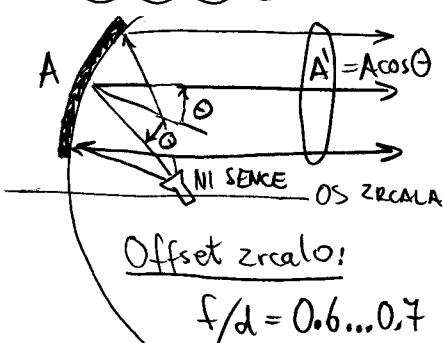 A
A' = Acosθ
θ
θ
NI SENCE
OS ZRCALA
Offset zrcalo:
f/d = 0.6...0.7